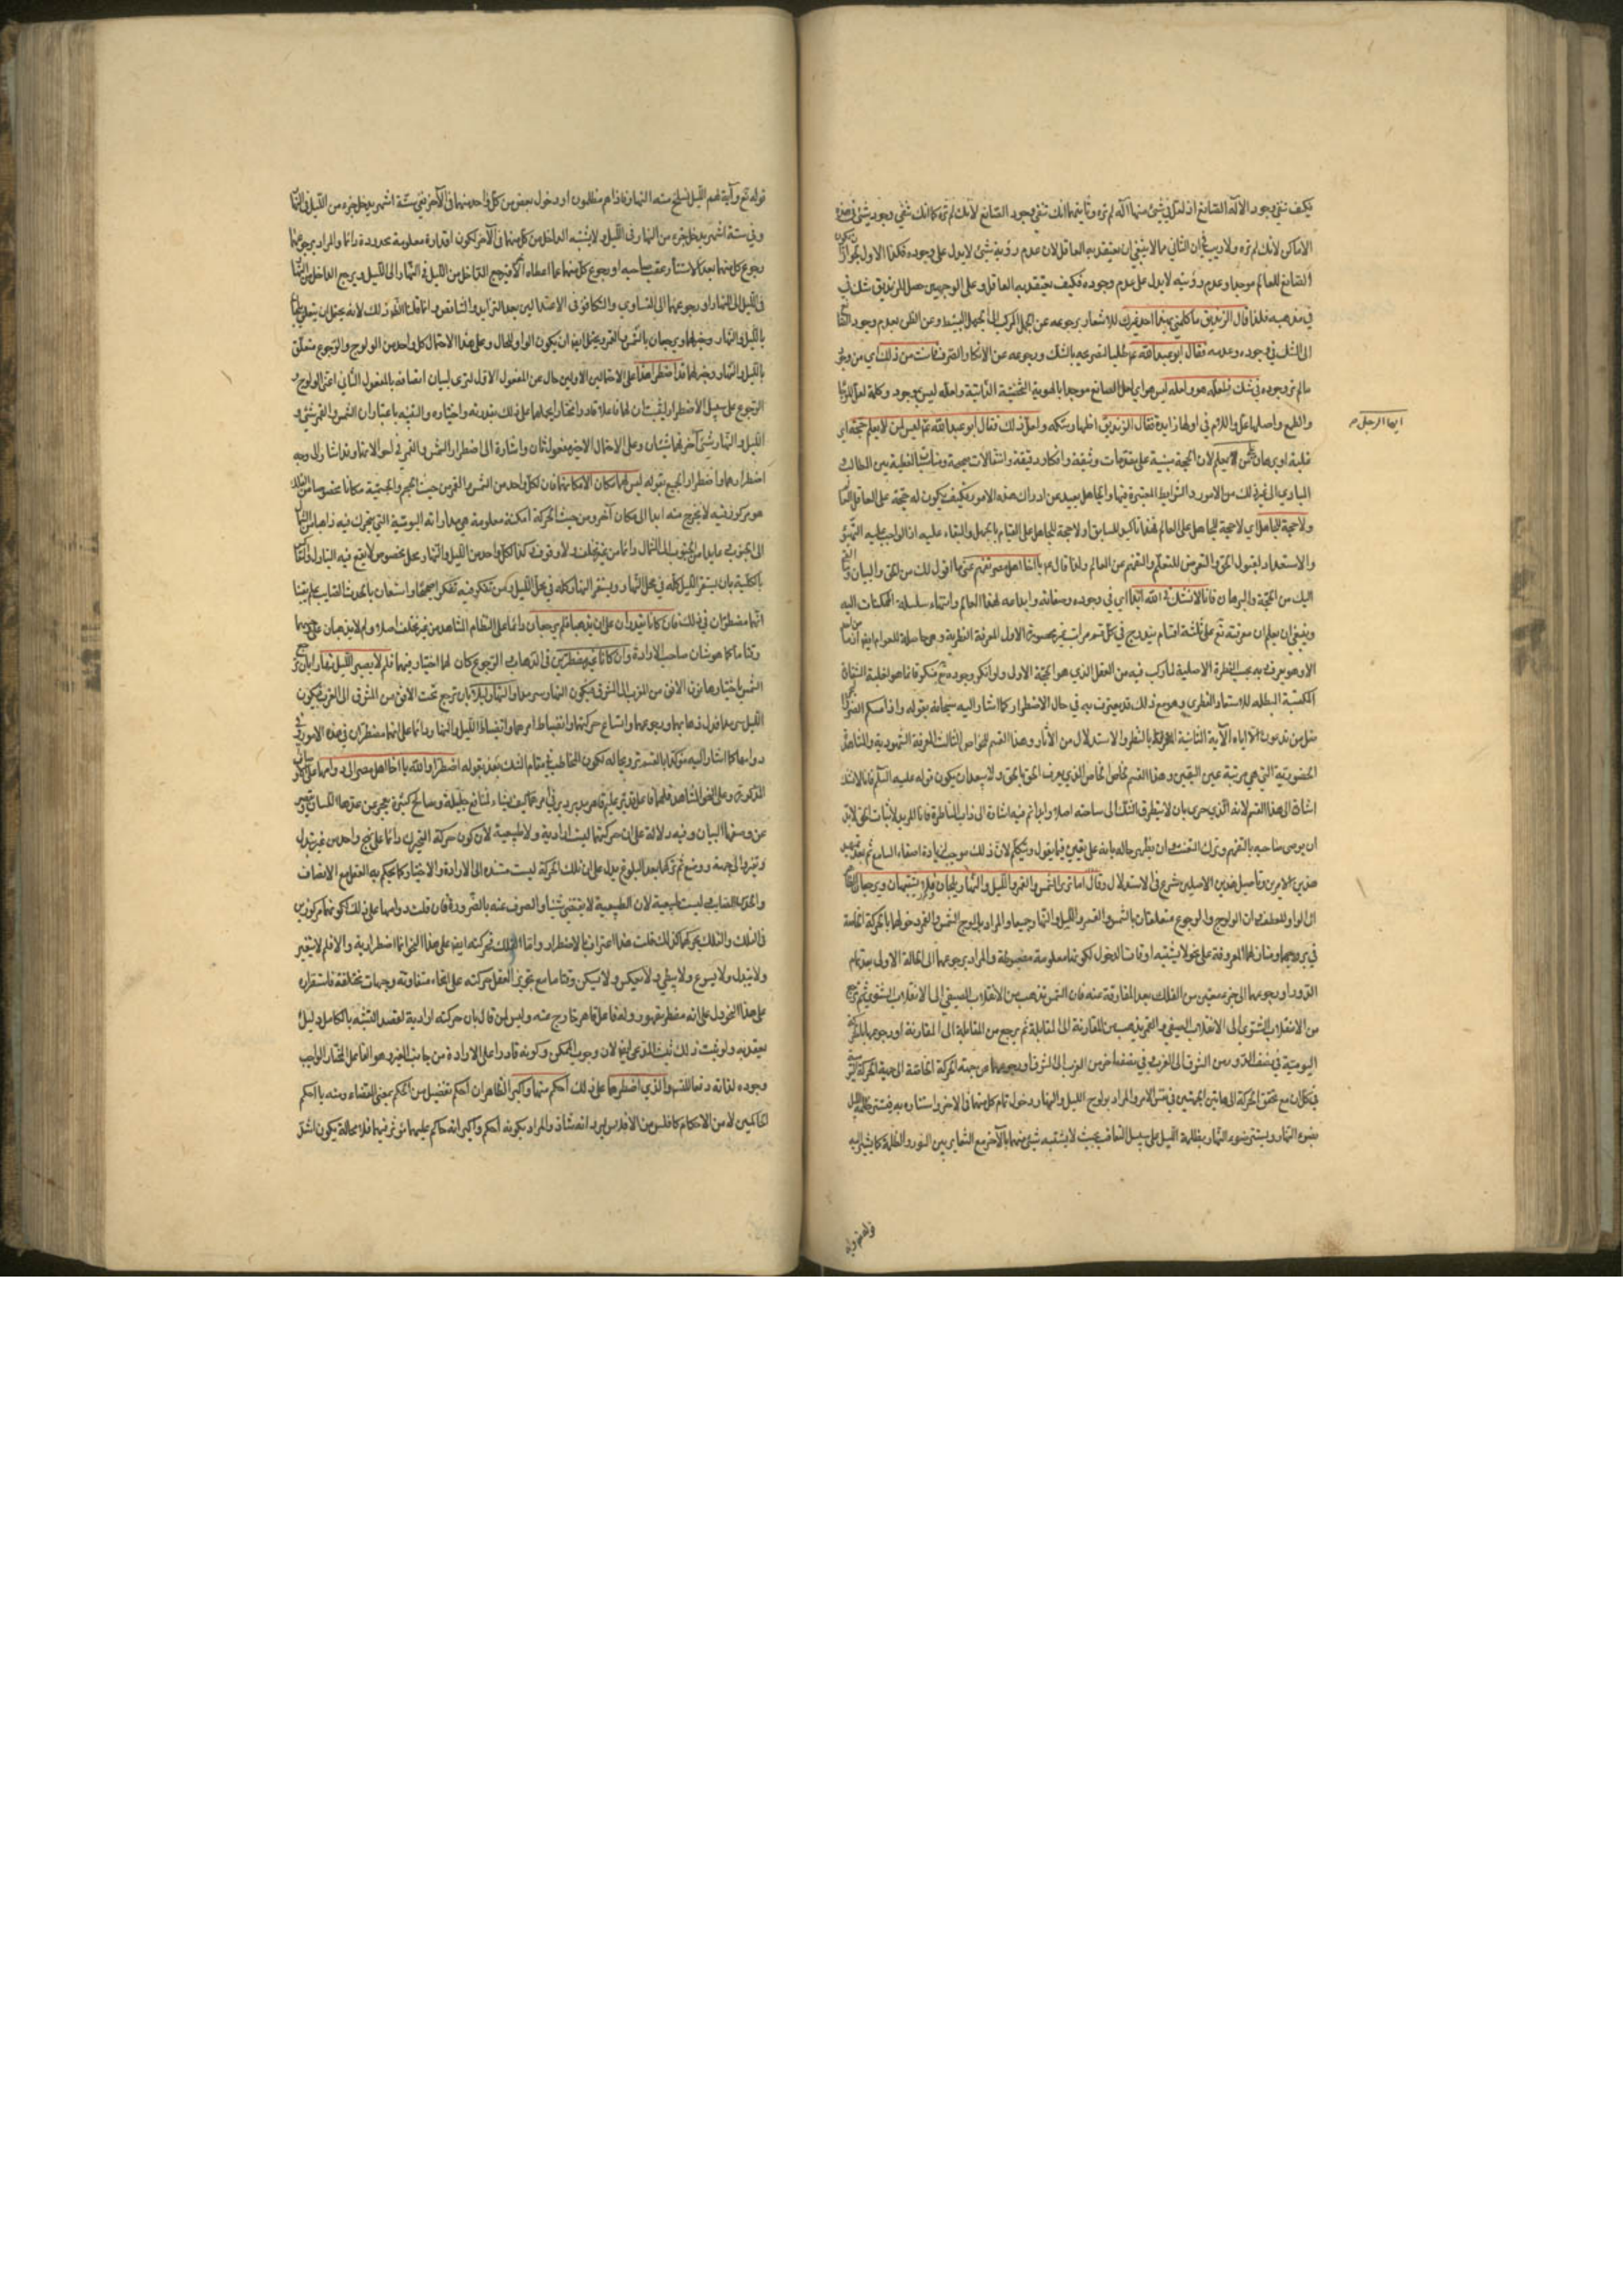 فكيف تنفي وجود الاله الصانع اذ لعل في شيء منها اله لم تره وثانيهما انك تنفي وجود الصانع لانك لم تره كما انك تنفي وجود شيء في هذه
الاماكن لانك لم تره ولا ريب في ان الثاني مما لا ينبغي ان يعتقد به العاقل لان عدم رؤية شيء لا يدل على عدم وجوده فكذا الاول لجواز ان يكون
الصانع للعالم موجودا وعدم رؤيته لا يدل على عدم وجوده فكيف يعتقد به العاقل وعلى الوجهين حصل للزنديق شك في
في مذهبه فلذا قال الزنديق ما كلمني بهذا احد غيرك للاشعار برجوعه عن الجهل المركب الى الجهل البسيط وعن الظن بعدم وجود الصانع
الى الشك في وجوده وعدمه فقال ابو عبد الله ع طلبا لتصريحه بالشك ورجوعه عن الانكار الصرف فانت من ذلك اي من وجود
ما لم تر وجوده في شك فلعله هو ولعله ليس هو اي لعل الصانع موجود بالهوية الشخصية الذاتية ولعله ليس بموجود وكلمة لعل للرجاء
والطمع واصلها عل واللام في اولها زايدة فقال الزنديق اظهارا لشكه ولعل ذلك فقال ابو عبد الله ع ليس لمن لا يعلم حجة اي
غلبة او برهان على من يعلم لان الحجة مبنية على مقدمات وثيقة وافكار دقيقة وانتقالات صحيحة ومناسبات لفظية بين المطالب
المبادي الى غير ذلك من الامور والشرايط المعتبرة فيها والجاهل بعيد عن ادراك هذه الامور فكيف يكون له حجة على العاقل العالم
ولا حجة للجاهل اي لا حجة للجاهل على العالم فهذا تاكيد للسابق او لا حجة للجاهل على القيام بالجهل والبقاء عليه اذ الواجب عليه التهيؤ
والاستعداد لقبول الحق والتعرض للتعلم والتفهم عن العالم ولذا قال ع يا اخا اهل مصر تفهم عني ما اقول لك من الحق والبيان والقي
اليك من الحجة والبرهان فانا لا نشك في الله ابدا اي في وجوده وصفاته وابداعه لهذا العالم وانتهاء سلسلة الممكنات اليه
وينبغي ان يعلم ان معرفته تع على ثلثة اقسام يندرج في كل قسم مراتب غير محصورة الاول المعرفة الفطرية وهي حاصلة للعوام ايضا اذ ما من احد
الا وهو يعرف ربه بحسب الفطرة الاصلية لما ركب فيه من العقل الذي هو الحجة الاولى ولو انكر وجوده تع منكر فانما هو لغلبة الشقاوة
المكتسبة المبطلة للاستعداد الفطري وهو مع ذلك قد يعترف به في حال الاضطرار كما اشار اليه سبحانه بقوله واذا مسكم الضر في البحر
ضل من تدعون الا اياه الآية الثانية المعرفة بالنظر والاستدلال من الآثار وهذا القسم للخواص الثالث المعرفة الشهودية والمشاهدة
الحضورية التي هي مرتبة عين اليقين وهذا القسم لخاص الخاص الذي يعرف الحق بالحق ولا يبعد ان يكون قوله عليه السلم فانا لا نشك
اشارة الى هذا القسم لانه الذي حري بان لا يتطرق الشك الى ساحته اصلا وابدا ثم فيه اشارة الى آداب المناظرة فان المريد لاثبات الحق لا بد
ان يوصي صاحبه بالتفهم وترك التعنت وان يظهر حاله بانه على يقين فيما يقول ويتكلم لان ذلك موجب لزيادة اصغاء السامع ثم بعد تمهيد
هذين الامرين وتأصيل هذين الاصلين شرع في الاستدلال وقال اما ترى الشمس والقمر والليل والنهار يلجان فلا يشتبهان ويرجعان
ان الواو للعطف وان الولوج والرجوع متعلقان بالشمس والقمر والليل والنهار جميعا والمراد بولوج الشمس والقمر دخولهما بالحركة الخاصة
في بروجهما ومنازلهما المعروفة على نحو لا يشتبه اوقات الدخول لكونها معلومة مضبوطة والمراد برجوعهما الى الحالة الاولى بعد تمام
الدور او رجوعهما الى جزء معين من الفلك بعد المفارقة عنه فان الشمس تذهب من الانقلاب الصيفي الى الانقلاب الشتوي ثم ترجع
من الانقلاب الشتوي الى الانقلاب الصيفي والقمر يذهب من المقارنة الى المقابلة ثم يرجع من المقابلة الى المقارنة او رجوعهما بالحركة
اليومية في نصف الدور من الشرق الى الغرب وفي نصف اخر من الغرب الى الشرق او رجوعهما من جهة الحركة الخاصة الى جهة الحركة اليومية
في كل آن مع تحقق الحركة الى هاتين الجهتين في نفس الامر والمراد بولوج الليل والنهار دخول تمام كل منهما في الاخر واستتاره به فيستتر ظلمة الليل
بضوء النهار ويستتر ضوء النهار بظلمة الليل على سبيل التعاقب بحيث لا يشتبه شيء منهما بالآخر مع التمايز بين النور والظلمة كما يشير اليه
ايها الرجل
قوله تع وآية
قوله تع وآية لهم الليل نسلخ منه النهار فاذا هم مظلمون او دخول بعض من كل واحد منهما في الآخر ففي ستة اشهر يدخل جزء من الليل في النهار
وفي ستة اشهر يدخل جزء من النهار في الليل لا يشتبه الداخل من كل منهما في الآخر لكون اقداره معلومة محدودة دائما والمراد برجوعهما
رجوع كل منهما بعد الاستتار عقيب صاحبه او رجوع كل منهما عما اعطاه الآخر فيرجع الداخل من الليل في النهار الى الليل ويرجع الداخل من النهار
في الليل الى النهار او رجوعهما الى التساوي والتكافؤ في الاعتدالين بعد التزايد والتناقص وانما قلنا الظاهر ذلك لانه يحتمل ان يتعلق يلجان
بالليل والنهار وخبرهما ويرجعان بالشمس والقمر ويحتمل ايضا ان يكون الواو للحال وعلى هذا الاحتمال كل واحد من الولوج والرجوع متعلق
بالليل والنهار وخبر لهما قد اضطرا هذا على الاحتمالين الاولين حال عن المفعول الاول لترى لبيان اتصافه بالمفعول الثاني اعني الولوج و
الرجوع على سبيل الاضطرار ليثبت ان لهما فاعلا قادرا مختارا يحملهما على ذلك بقدرته واختياره والتثنية باعتبار ان الشمس والقمر شيء و
الليل والنهار شيء آخر فهما شيئان وعلى الاحتمال الاخير مفعول ثان واشارة الى اضطرار الشمس والقمر في احوالهما وقد اشار الى وجه
اضطرارهما واضطرار الجميع بقوله ليس لهما مكان الا مكانهما فان لكل واحد من الشمس والقمر من حيث الحجم والجسمية مكانا مخصوصا من الفلك
هو مركوز فيه لا يخرج منه ابدا الى مكان آخر ومن حيث الحركة امكنة معلومة هي مداراته اليومية التي يتحرك فيه ذاهبا من الشمال
الى الجنوب عائدا من الجنوب الى الشمال دائما من غير تخلف ولا وقوف وكذا لكل واحد من الليل والنهار محل مخصوص لا يقع فيه التبادل والتعاكس
بالكلية بان يستقر الليل كله في محل النهار ويستقر النهار كله في محل الليل ومن تفكر فيه تفكرا صحيحا واستعان بالحدث الصايب علم يقينا
انهما مضطران في ذلك فان كانا يقدران على ان يذهبا فلم يرجعان دائما على النظام المشاهد من غير تخلف اصلا ولم لا يذهبان على وجههما
وقتا ما كما هو شان صاحب الارادة وان كانا غير مضطرين في الذهاب والرجوع كان لهما اختيار فيهما فلم لا يصير الليل نهارا بان يرجع
الشمس باختيارها فوق الافق من المغرب الى المشرق فيكون النهار سرمدا والنهار ليلا بان يرجع تحت الافق من المشرق الى المغرب فيكون
الليل سرمدا فدل ذهابهما ورجوعهما واتساع حركتهما وانضباط امرهما وانضباط الليل والنهار دائما على انهما مضطران في هذه الامور وفي
دوامها كما اشار اليه مؤكدا بالقسم ترويجا له لكون المخاطب في مقام الشك بعد بقوله اضطرا والله يا اخا اهل مصر الى دوامهما على الحركة
المذكورة وعلى النحو المشاهد فلهما فاعل قدير عليم قاهر مدبر يدبر في امرهما كيف يشاء لمنافع جليلة ومصالح كثيرة يعجز عن عدها اللسان ويقصر
عن وصفها البيان وفيه دلالة على ان حركتهما ليست ارادية ولا طبيعية لان كون حركة المتحرك دائما على نهج واحد من غير تبدل
وتغير الى جهة ووضع ثم تركهما بعد البلوغ يدل على ان تلك الحركة ليست مستندة الى الارادة والاختيار كما يحكم به العقل مع الانصاف
والحدس الصايب وليست طبيعية لان الطبيعية لا يقتضي شيئا والصرف عنه بالضرورة فان قلت دوامهما على ذلك لكونهما مركوزين
في الفلك والفلك يحركهما كذلك قلت هذا اعتراف بالاضطرار واما الفلك فحركته ايضا على هذا النحو انما اضطرارية والا فلم لا يتغير
ولا يتبدل ولا يسرع ولا يبطي ولا يعكس ولا يسكن وقتا ما مع تجويز العقل حركته على انحاء متفاوتة وجهات مختلفة فاستقراره
على هذا النحو دل على انه مضطر مقهور وله فاعل قاهر خارج عنه وليس لمن قال بان حركته ارادية لقصد التشبه بالكامل دليل
يعتد به ولو ثبت ذلك ثبت المدعى ايضا لان وجود الممكن وكونه قادرا على الارادة من جانب الغير وهو الفاعل المختار الواجب
وجوده لذاته دفعا للتس والذي اضطرهما على ذلك احكم منهما واكبر الظاهر ان احكم تفضيل من الحكم بمعنى القضاء ومنه يا احكم
الحاكمين لا من الاحكام كافلس من الافلاس ليرد انه شاذ والمراد بكونه احكم واكبر انه حاكم عليهما مؤثر فيهما فلا محالة يكون اشد